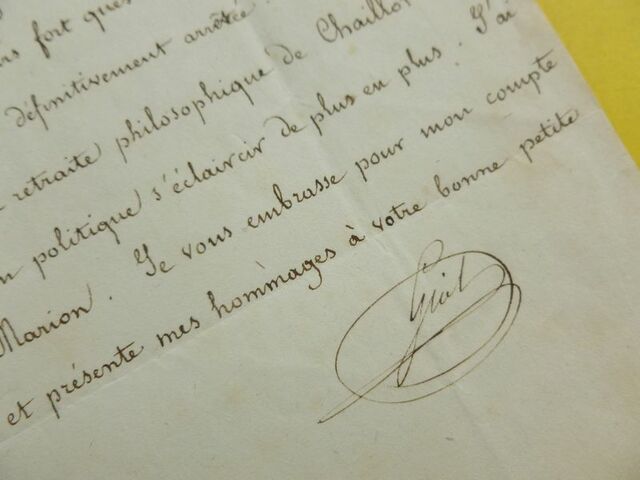 fort que
définitivement arrêtée.
retraite philosophique de Chaillot
politique s'éclaircir de plus en plus. J'ai
Marion. Je vous embrasse pour mon compte
et présente mes hommages à votre bonne petite